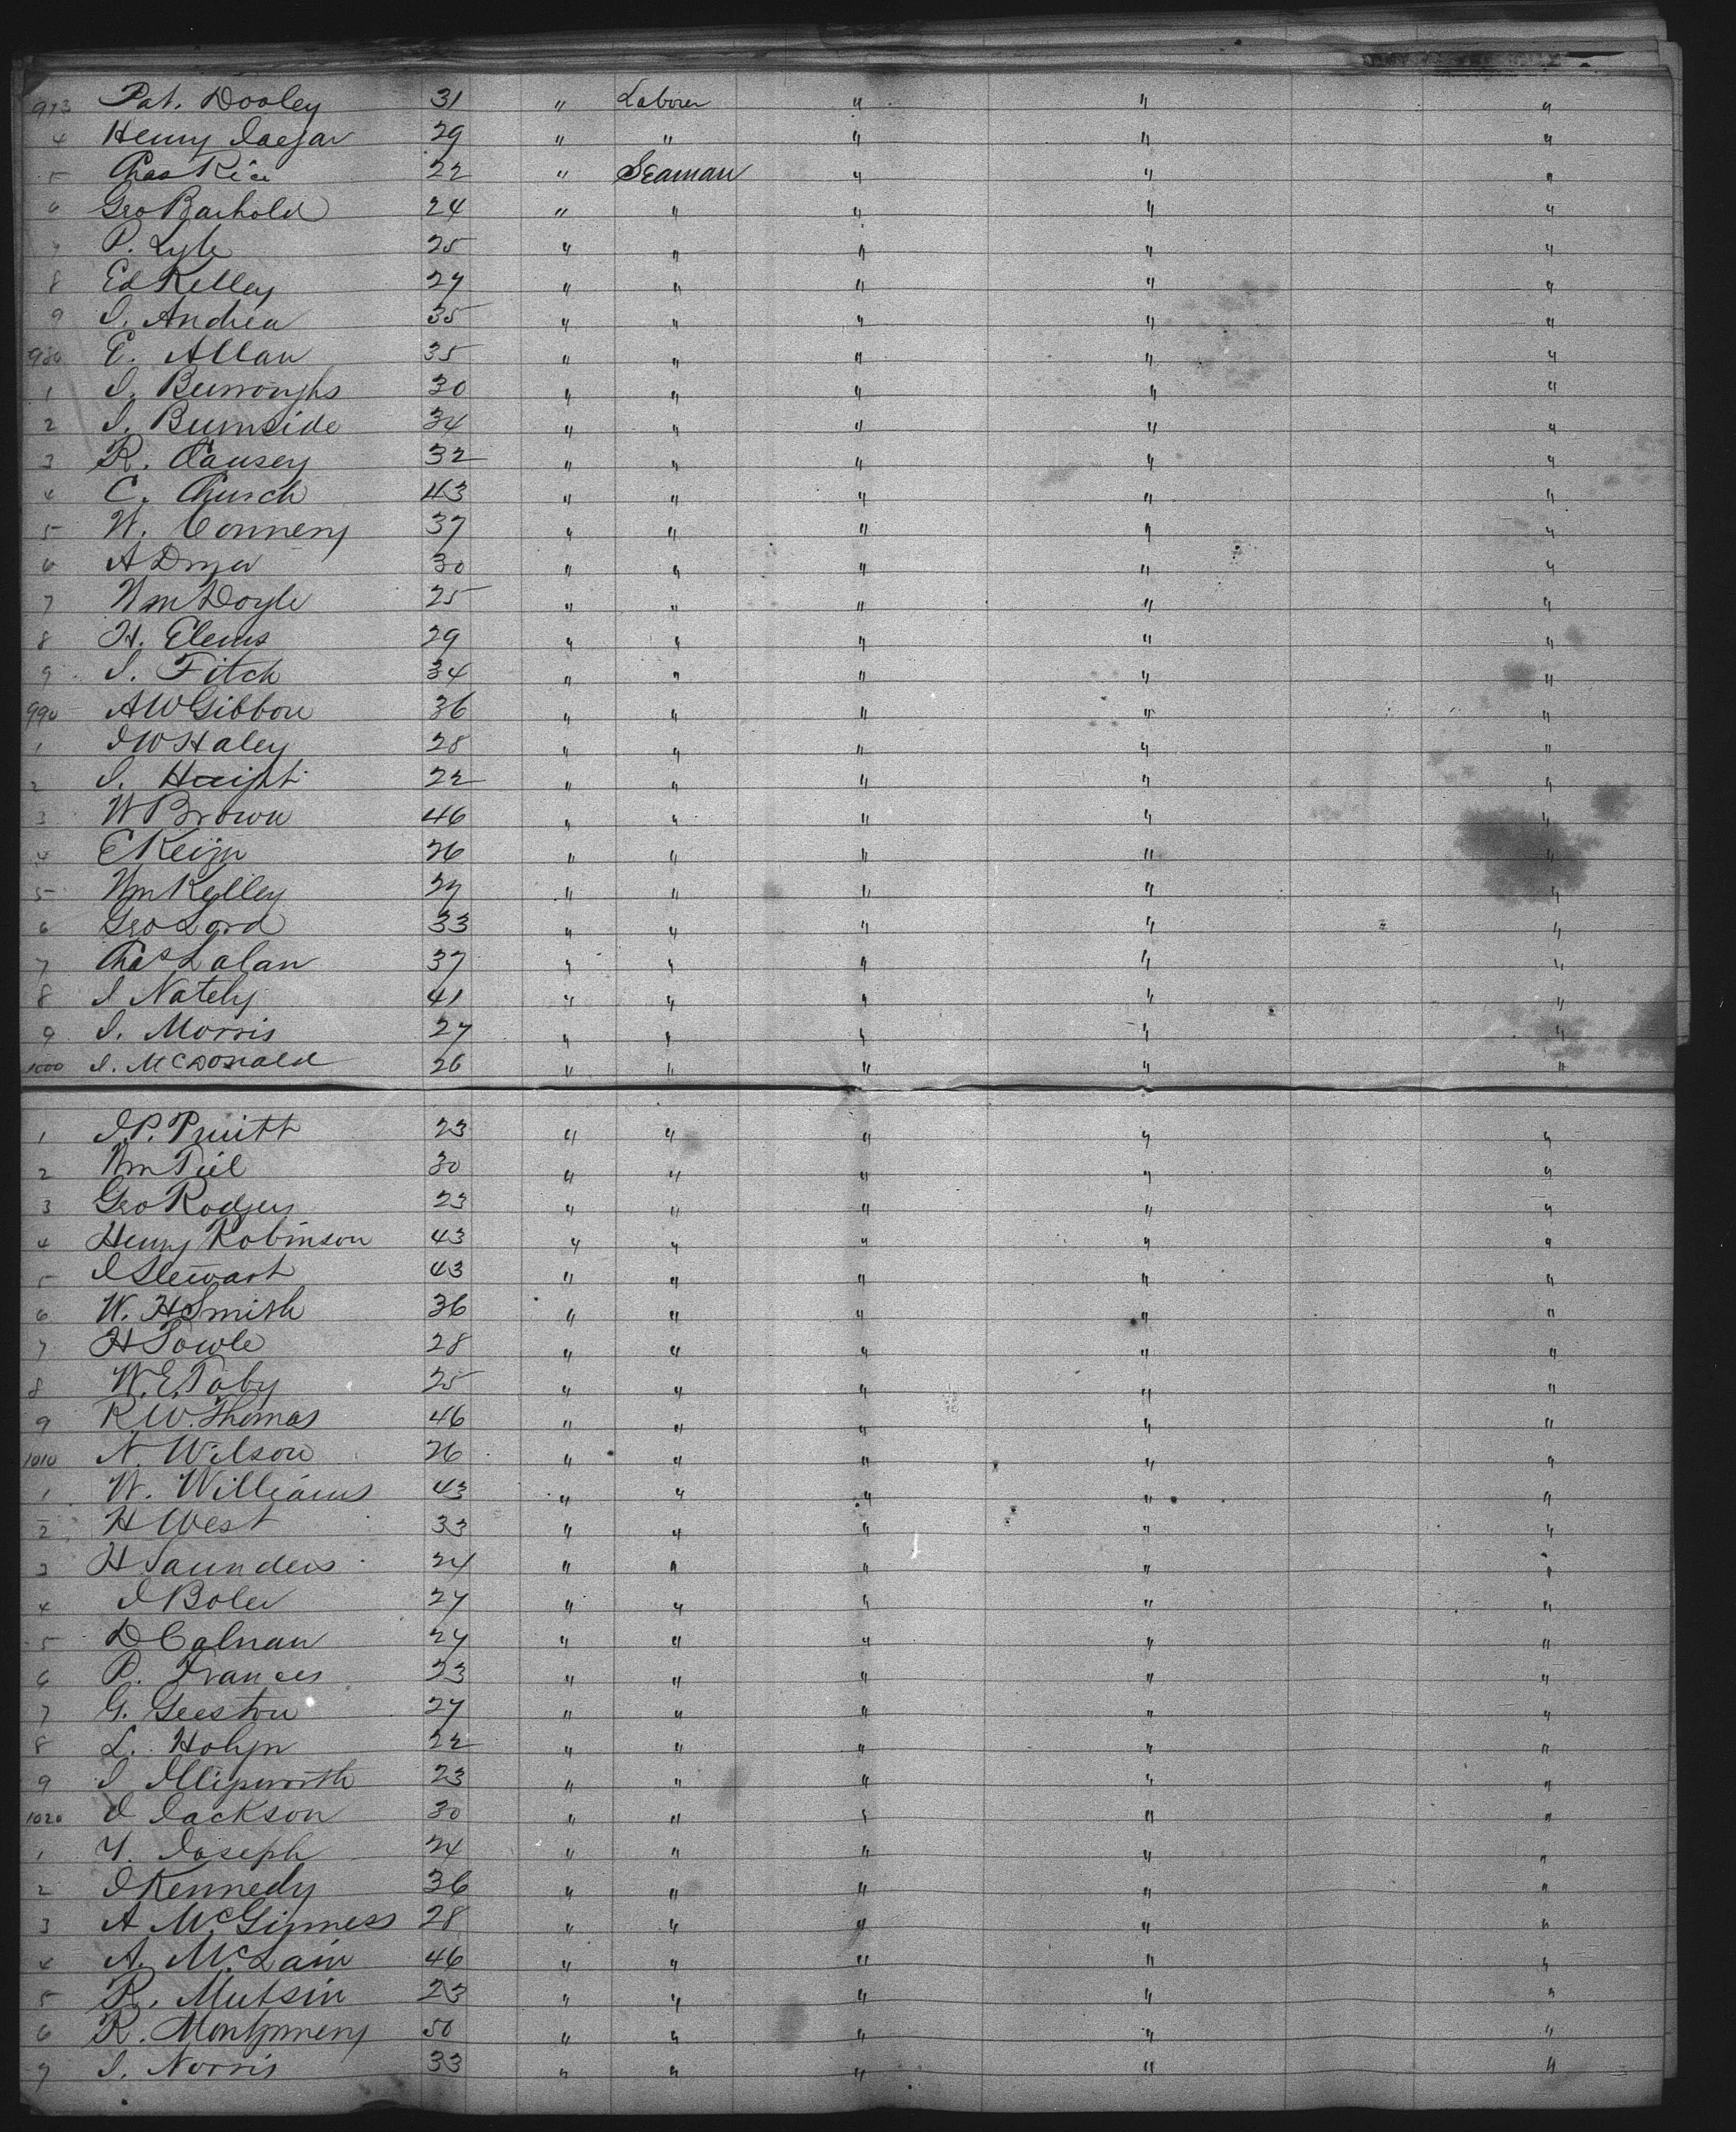 973 Pat. Dooley 31 " Laborer " " "
4 Henry Jaegar 29 " " " " "
5 Chas Rice 22 " Seaman " " "
6 Geo Barhold 24 " " " " "
7 P. Lyle 25 " " " " "
8 Ed Kelley 27 " " " " "
9 J. Andrea 35 " " " " "
980 E. Allan 35 " " " " "
1 J. Burroughs 30 " " " " "
2 J. Burnside 34 " " " " "
3 R. Causey 32 " " " " "
4 C. Church 43 " " " " "
5 W. Connery 37 " " " " "
6 A Dryer 30 " " " " "
7 Wm Doyle 25 " " " " "
8 H. Elems 29 " " " " "
9 J. Fitch 34 " " " " "
990 A W Gibbon 36 " " " " "
1 J W Haley 28 " " " " "
2 J. Haight 22 " " " " "
3 W Brown 46 " " " " "
4 E 26 " " " " "
5 Wm Kelley 27 " " " " "
6 Geo Lord 33 " " " " "
7 Chas Lalan 37 " " " " "
8 J Nately 41 " " " " "
9 J. Morris 27 " " " " "
1000 J. McDonald 26 " " " " "
1 J.P. Pruitt 23 " " " " "
2 Wm Piel 30 " " " " "
3 Geo Rodgers 23 " " " " "
4 Henry Robinson 43 " " " " "
5 J Stewart 43 " " " " "
6 W. H Smith 36 " " " " "
7 H Sowle 28 " " " " "
8 W. E. Toby 25 " " " " "
9 R W. Thomas 46 " " " " "
1010 N. Wilson 26 " " " " "
1 W. Williams 43 " " " " "
2 H West 33 " " " " "
3 H Saunders 24 " " " " "
4 J Boler 27 " " " " "
5 D Calnan 27 " " " " "
6 P. Frances 23 " " " " "
7 G. Geeston 27 " " " " "
8 L. 22 " " " " "
9 J Illipworth 23 " " " " "
1020 J Jackson 30 " " " " "
1 Y. Joseph 24 " " " " "
2 J Kennedy 36 " " " " "
3 A McGinness 28 " " " " "
4 A. McLain 46 " " " " "
5 R. Mutsin 23 " " " " "
6 R. Montgomery 50 " " " " "
7 J. Norris 33 " " " " "